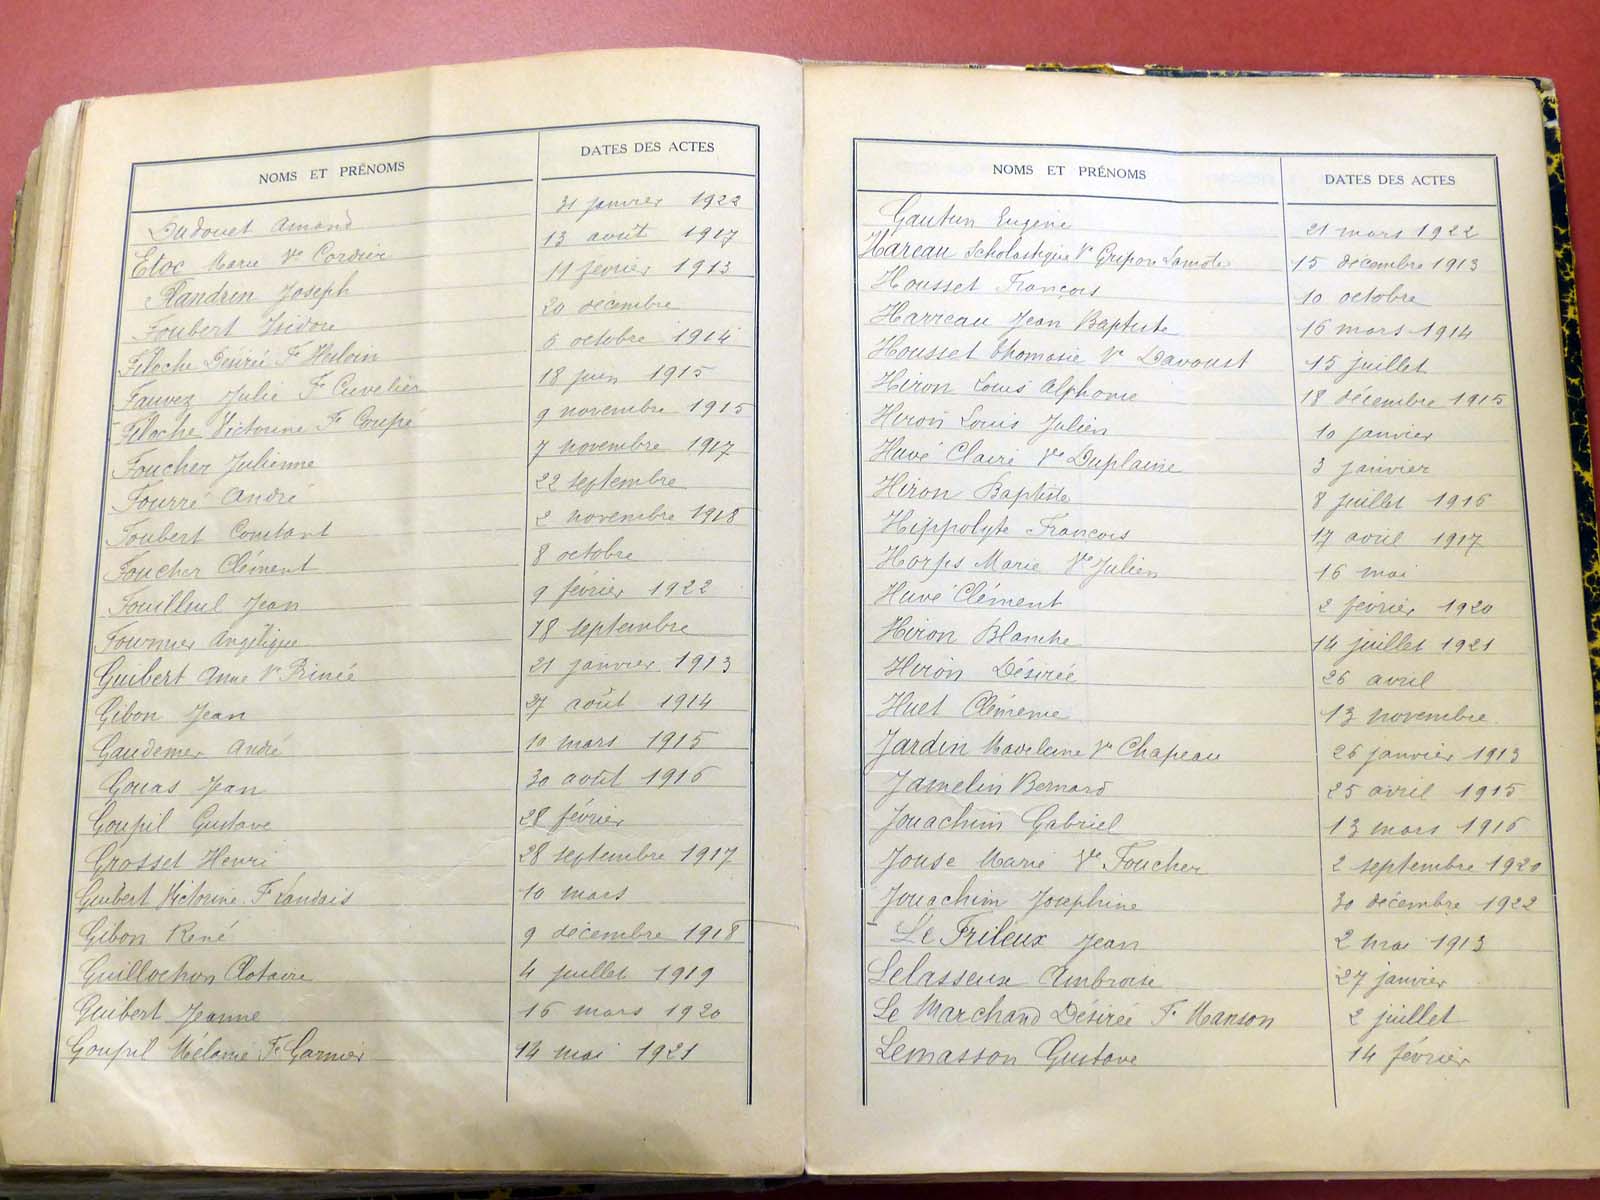 NOMS ET PRÉNOMS DATES DES ACTES
Dudouet Amand 31 janvier 1922
Etoc Marie Ve Cordier 13 août 1917
Flandrin Joseph 11 fevrier 1913
Foubert Isidore 20 décembre
Filoche Désirée Fe 6 octobre 1914
Fauvez Julie Fe Cuvelier 18 juin 1915
Filoche Victorine Fe Coupé 9 novembre 1915
Foucher Julienne 7 novembre 1917
Fourré André 22 septembre
Foubert Constant 2 novembre 1918
Foucher Clément 8 octobre
Fouilleul Jean 9 février 1922
Fournier Angélique 18 septembre
Guibert Anne Ve 21 janvier 1913
Gibon Jean 27 août 1914
Gaudemer André 10 mars 1915
Gouas Jean 30 août 1916
Goupil Gustave 28 février
Grosset Henri 28 septembre 1917
Guibert Victorine Fe Landais 10 mars
Gibon René 9 décembre 1918
Guillochon Clotaire 4 juillet 1919
Guibert Jeanne 16 mars 1920
Goupil Mélanie Fe Garnier 14 mai 1921
NOMS ET PRÉNOMS DATES DES ACTES
Gautun Eugène 21 mars 1922
Hareau Scholastique Ve Gripon Lamote 15 décembre 1913
Housset François 10 octobre
Harreau Jean Baptiste 16 mars 1914
Housset Thomasie Ve Davoust 15 juillet
Hiron Louis Alphonse 18 décembre 1915
Hiron Louis Julien 10 janvier
Huvé Claire Ve Duplaine 3 janvier
Hiron Baptiste 8 juillet 1916
Hippolyte François 17 avril 1917
Horps Marie Ve Julien 16 mai
Huvé Clément 2 février 1920
Hiron Blanche 14 juillet 1921
Hiron Désirée 26 avril
Huet Clémence 13 novembre
Jardin Madeleine Ve Chapeau 26 janvier 1913
Jamelin Bernard 25 avril 1915
Jouachim Gabriel 13 mars 1916
Jouse Marie Ve Foucher 2 septembre 1920
Jouachim Joséphine 30 décembre 1922
Le Frileux Jean 2 mai 1913
Lelasseux Ambroise 27 janvier
Le Marchand Désirée Fe Manson 2 juillet
Lemasson Gustave 14 février